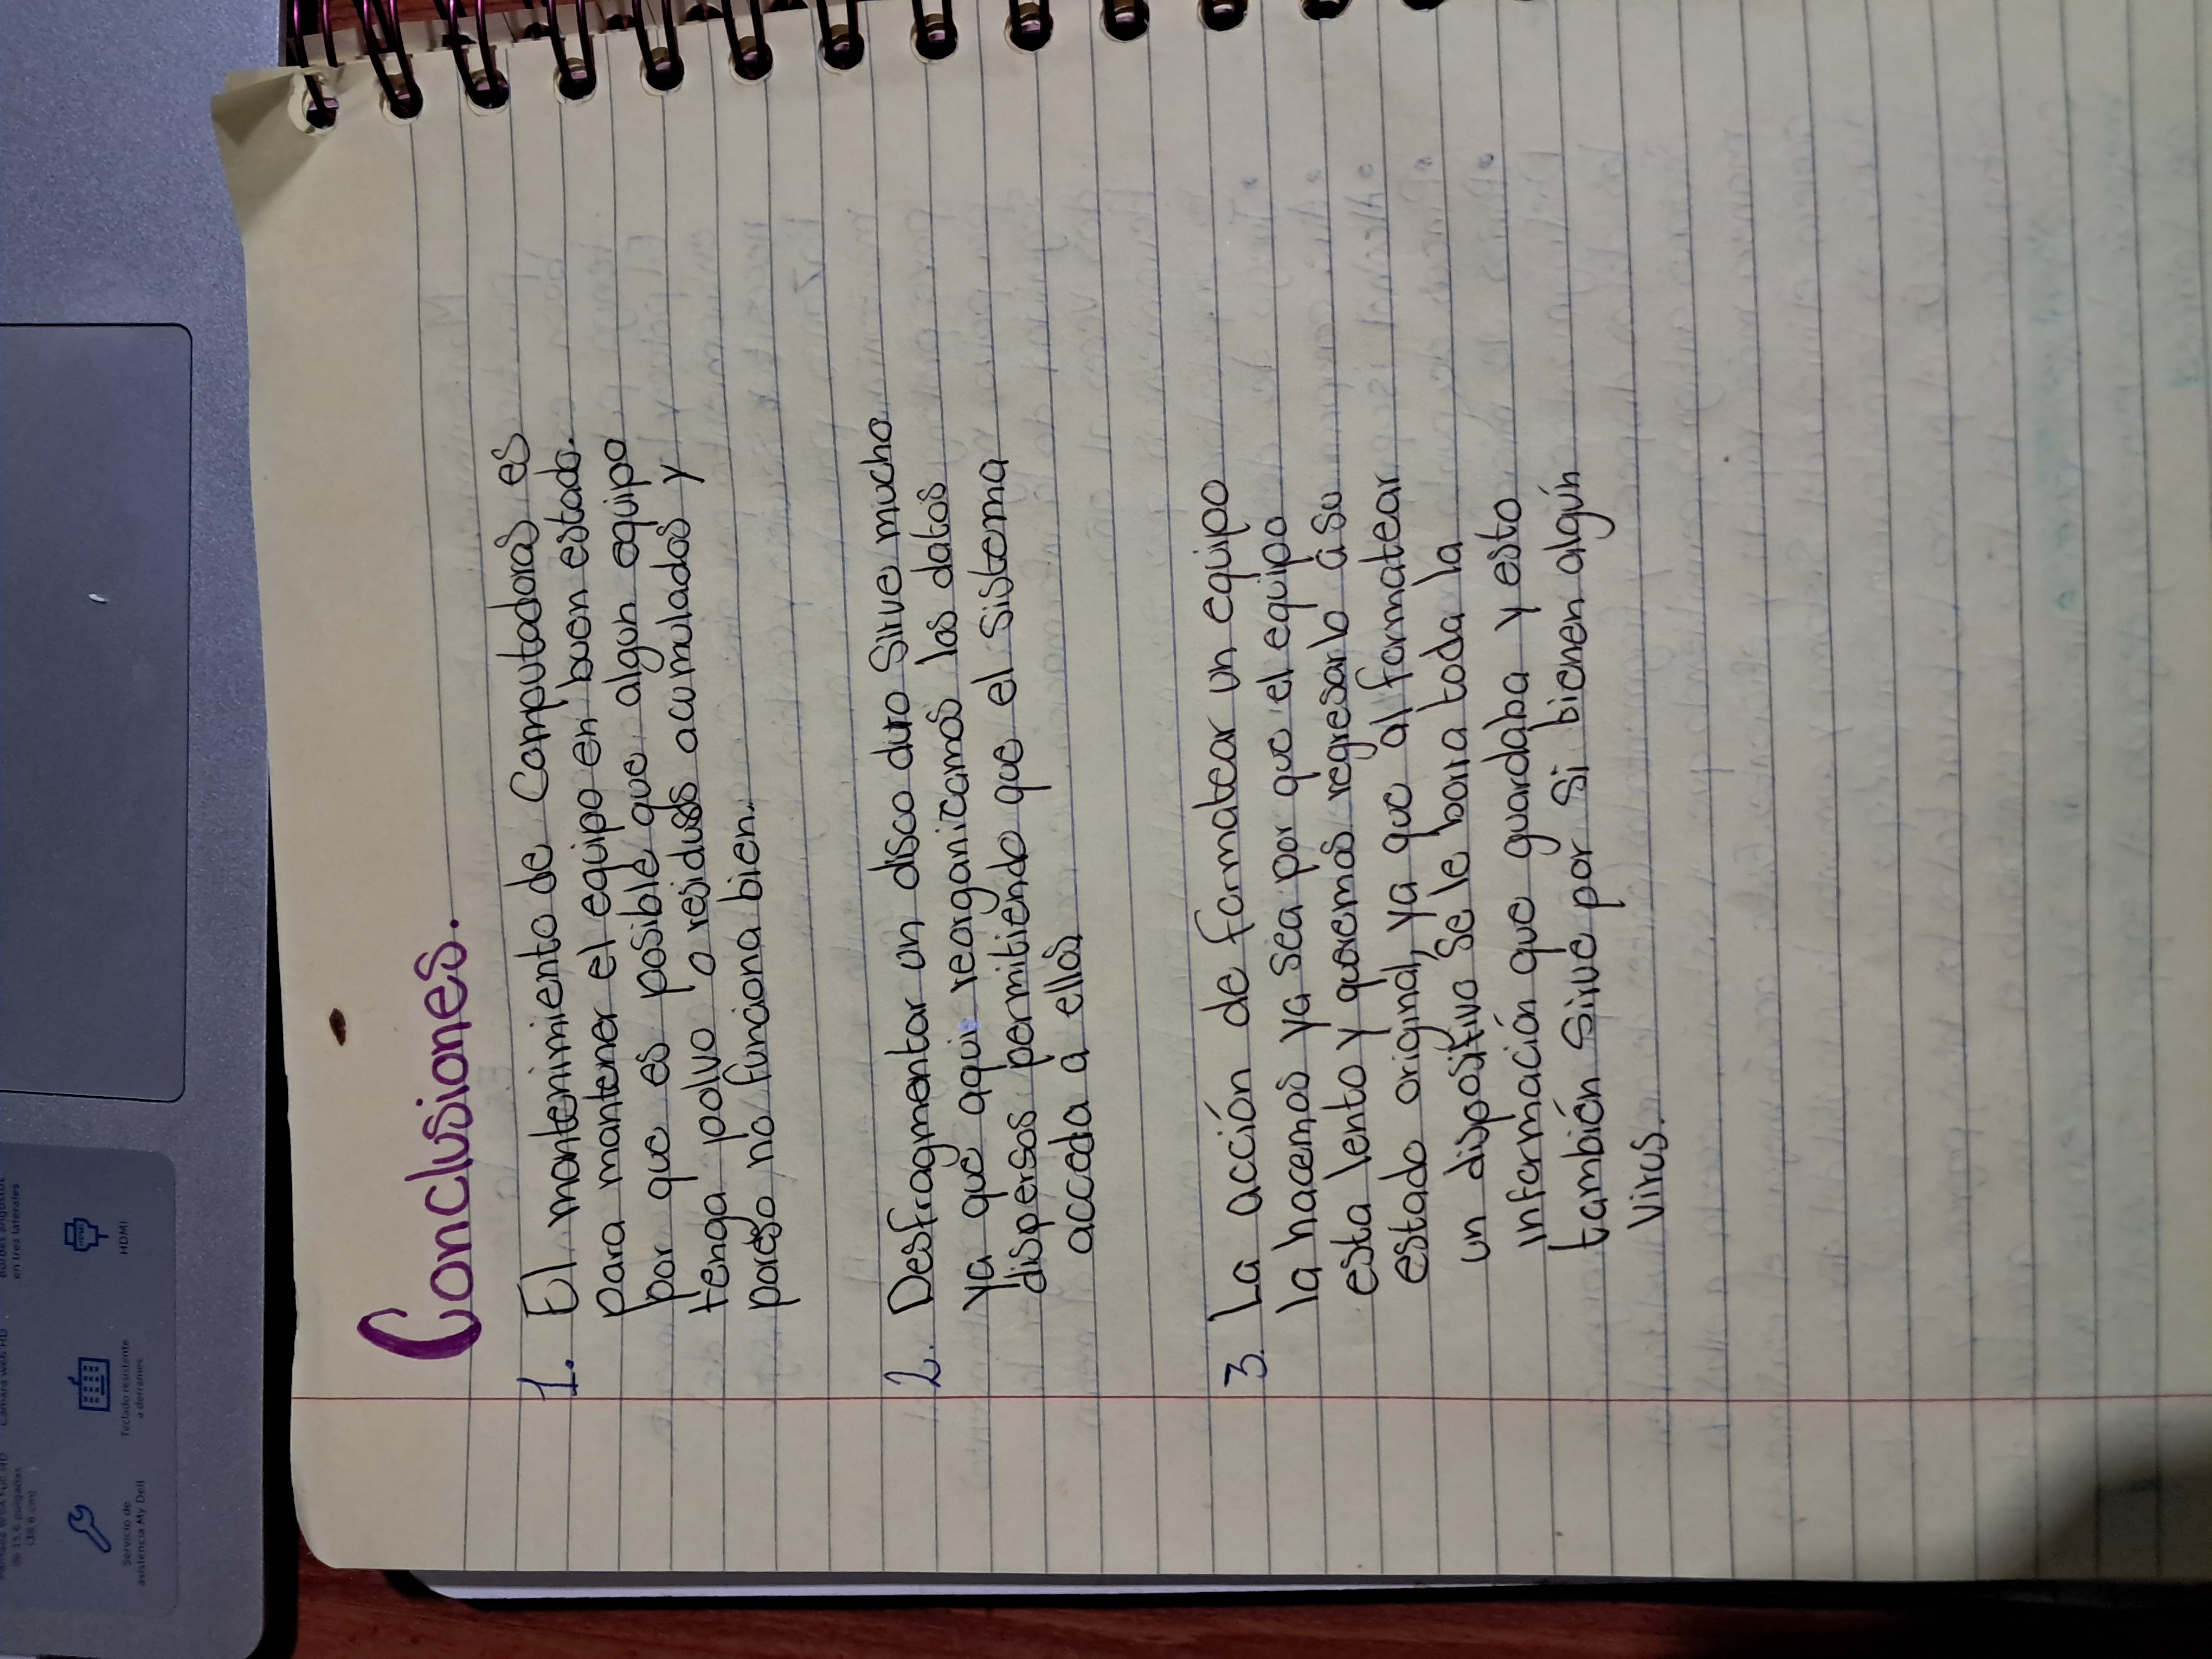 Conclusiones.
1. El mantenimiento de Computadoras es
para mantener el equipo en buen estado.
por que es posible que algun equipo
tenga polvo o residuos acumulados y
poreso no funciona bien.
2. Desfragmentar un disco duro Sirve mucho
ya que aqui reorganicamos los datos
dispersos permitiendo que el Sistema
acceda a ellos
3. La acción de formatear un equipo
la hacemos ya sea por que el equipo
esta lento y queremos regresarlo a su
estado original, ya que al formatear
un dispositivo se le borra toda la
información que guardaba y esto
también Sirve por Si bienen algún
Virus.
en tres laterales
HDMI
Teclado resistente
a derrames
de 15.6 pulgadas
Servicio de
asistencia My Dell